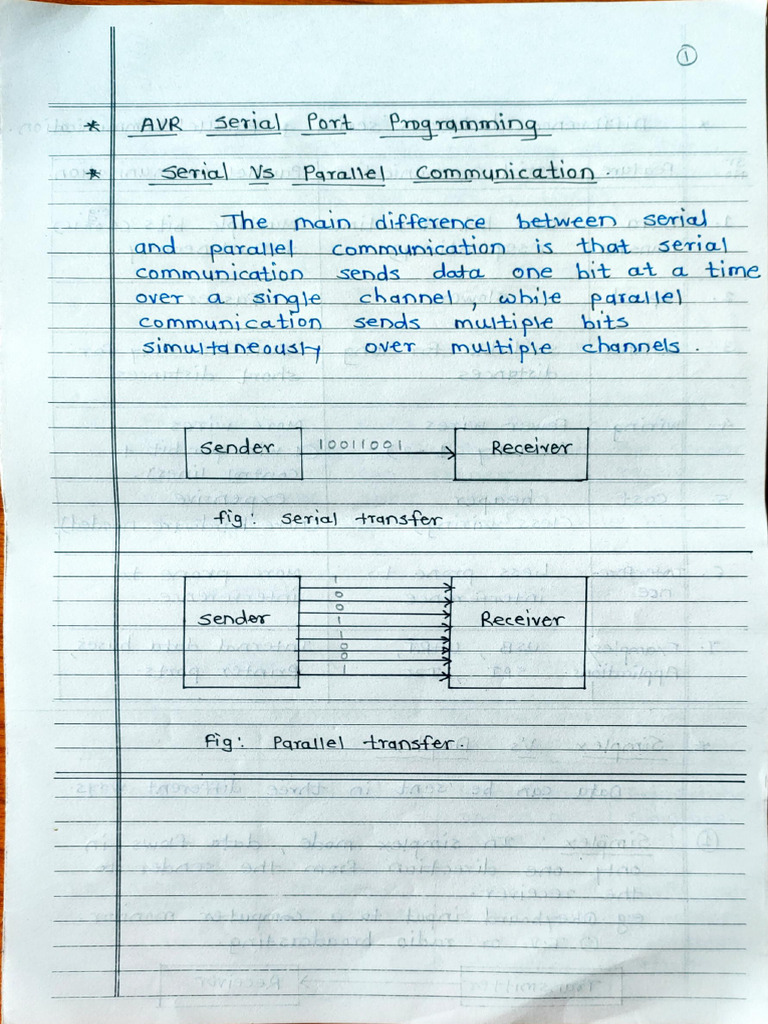 1
* AVR Serial Port Programming
* Serial Vs Parallel Communication.
The main difference between serial
and parallel communication is that serial
communication sends data one bit at a time
over a single channel, while parallel
communication sends multiple bits
simultaneously over multiple channels.
Sender 10011001 Receiver
fig: serial transfer
1
0
0
Sender 1 Receiver
1
0
0
1
Fig: Parallel transfer.